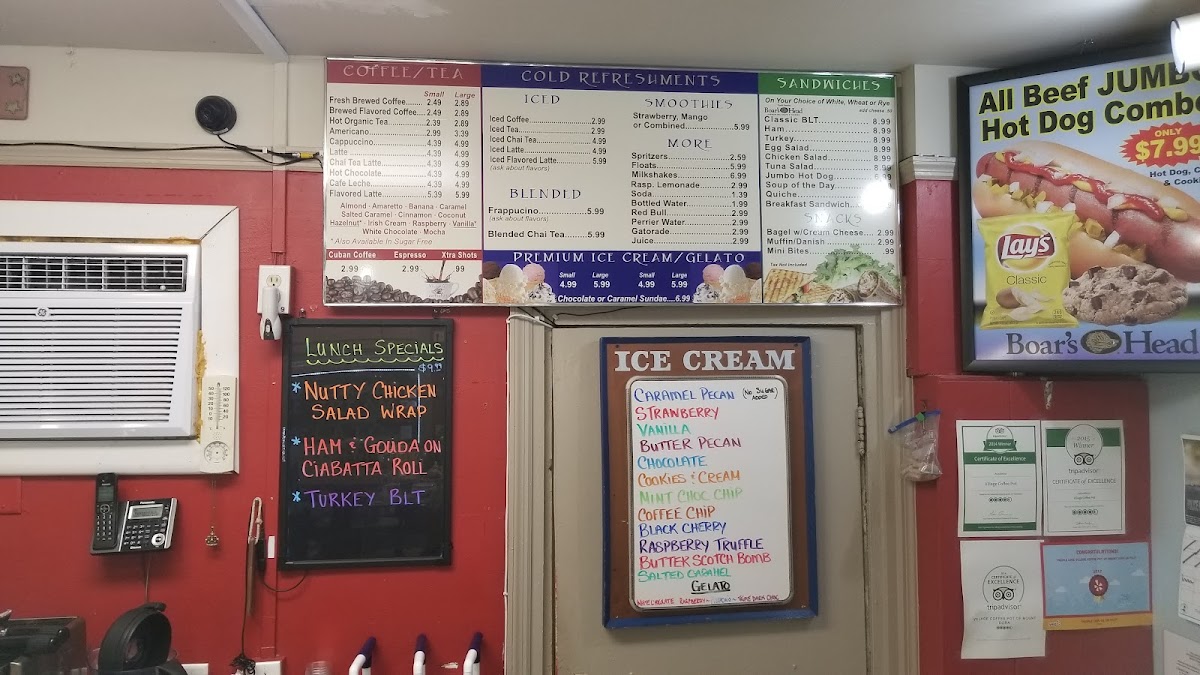 COFFEE/TEA
Small Large
Fresh Brewed Coffee........ 2.49 2.89
Brewed Flavored Coffee.... 2.49 2.89
Hot Organic Tea.................2.39 2.89
Americano........................2.99 3.39
Cappuccino.......................4.39 4.99
Latte.................................4.39 4.99
Chai Tea Latte...................4.39 4.99
Hot Chocolate...................4.39 4.99
Cafe Leche.......................4.39 4.99
Flavored Latte...................5.39 5.99
Almond - Amaretto - Banana - Caramel
Salted Caramel - Cinnamon - Coconut
Hazelnut* - Irish Cream - Raspberry - Vanilla*
White Chocolate - Mocha
* Also Available In Sugar Free
Cuban Coffee Espresso Xtra Shots
2.99 2.99 .99
COLD REFRESHMENTS
ICED
Iced Coffee...................2.99
Iced Tea.......................2.99
Iced Chai Tea................4.99
Iced Latte.....................4.99
Iced Flavored Latte........5.99
(ask about flavors)
BLENDED
Frappucino...................5.99
(ask about flavors)
Blended Chai Tea..........5.99
SMOOTHIES
Strawberry, Mango
or Combined...................5.99
MORE
Spritzers.........................2.59
Floats..............................5.99
Milkshakes......................6.99
Rasp. Lemonade..............2.99
Soda...............................1.39
Bottled Water..................1.99
Red Bull..........................2.99
Perrier Water...................2.99
Gatorade.........................2.99
Juice...............................2.99
PREMIUM ICE CREAM/GELATO
Small Large Small Large
4.99 5.99 4.99 5.99
Chocolate or Caramel Sundae....6.99
SANDWICHES
On Your Choice of White, Wheat or Rye
Boar's Head add cheese .50
Classic BLT..................... 8.99
Ham............................... 8.99
Turkey............................ 8.99
Egg Salad........................ 8.99
Chicken Salad.................. 8.99
Tuna Salad...................... 8.99
Jumbo Hot Dog
Soup of the Day
Quiche
Breakfast Sandwich
SNACKS
Bagel w/Cream Cheese..... 2.99
Muffin/Danish................. 2.99
Mini Bites....................... .99
Tax Not Included
All Beef JUMB
Hot Dog Combo
ONLY
$7.99
Hot Dog, C
& Cooki
Lay's
Classic
Boar's Head
LUNCH SPECIALS
* NUTTY CHICKEN
SALAD WRAP
* HAM & GOUDA ON
CIABATTA ROLL
* TURKEY BLT
ICE CREAM
CARAMEL PECAN (NO SUGAR ADDED)
STRAWBERRY
VANILLA
BUTTER PECAN
CHOCOLATE
COOKIES & CREAM
MINT CHOC CHIP
COFFEE CHIP
BLACK CHERRY
RASPBERRY TRUFFLE
BUTTERSCOTCH BOMB
SALTED CARAMEL
GELATO
Certificate of Excellence
2015
Winner
tripadvisor
CERTIFICATE of EXCELLENCE
CERTIFICATE of
EXCELLENCE
tripadvisor
GE
Panasonic